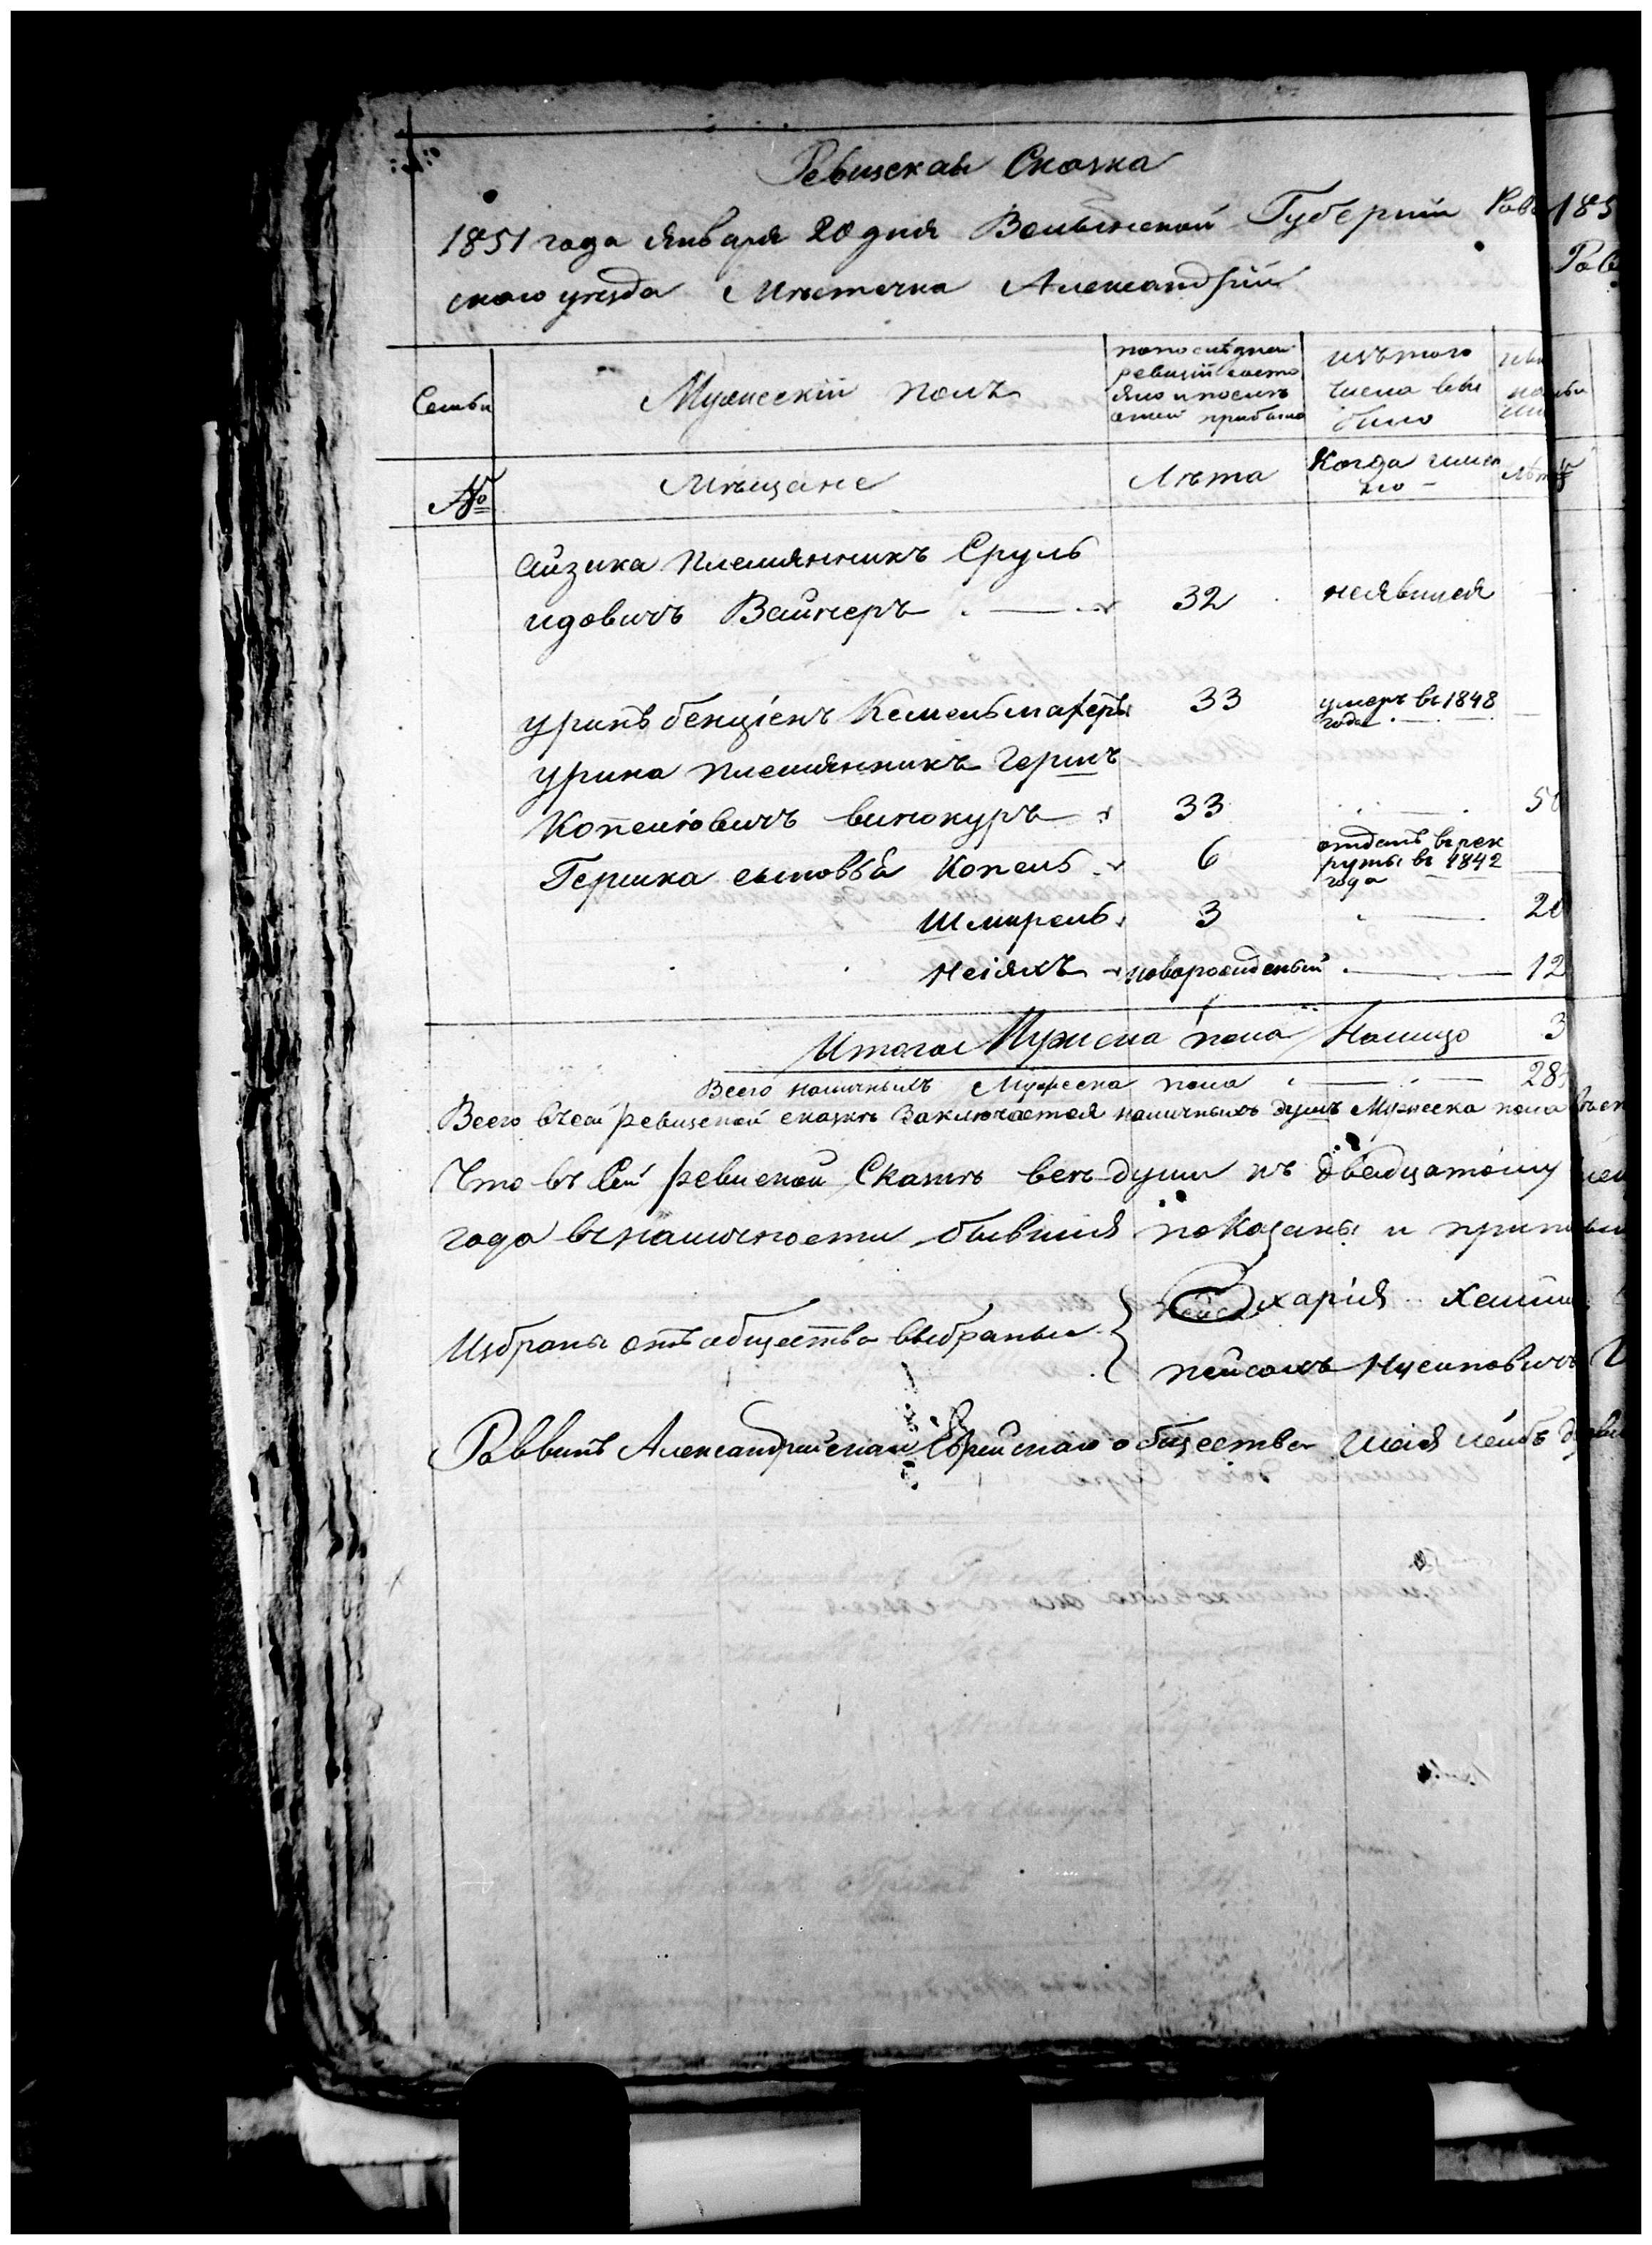 Ревизская Сказка
1851 года Января 20 дня Волынской Губерніи Рове
скаго уезда Мѣстечка Александріи
Семьи
Мужескій полъ
по последней
ревизіи состо
яло и после
оной прибыло
изъ того
числа вы
было
№
Мѣщане
Лѣта
Когда имен
но
Айзика племянникъ Сруль
идовичъ Вайнеръ 32 неявился
уринъ бенціенъ Кесельмахеръ 33 умеръ въ 1848
года
урина племянникъ Гершъ
Копелювичъ винокуръ 33 50
Гершка сыновья Копель 6 отданъ в рек
руты въ 1842
года
Шмирель 3 20
Неіяхъ новорожденый 12
Итого Мужеска пола Налицо 3
Всего наличныхъ Мужеска пола 28
Всего въ сей ревизской сказкѣ Заключается наличныхъ душъ Мужеска пола
Что въ Сей ревиской Сказкѣ всѣ души къ двадцатому
года въ наличности бывшія показаны и
Избраны отъ общества выбраные
харія Хаими
пейсахъ Нусиновичъ
Раввинъ Александрийскаго Еврейскаго общества Шаія лейбъ
185
Рав